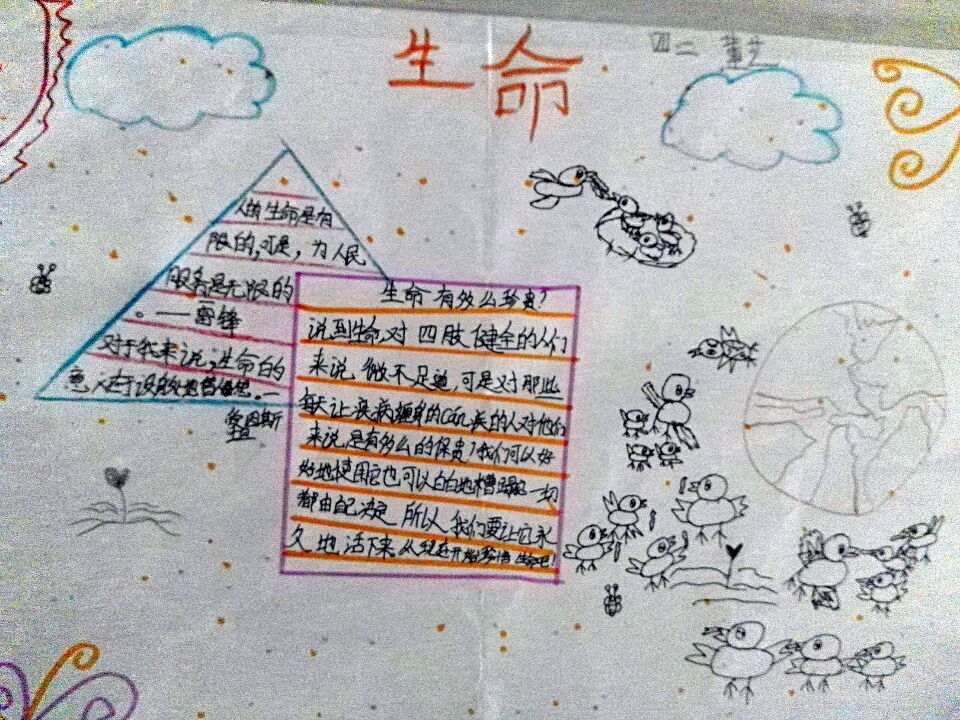 生命
Ⅶ二
人的生命是有
限的,可是，为人民
服务是无限的
。——雷锋
对于我来说，生命的
意义在于设身处地
爱因斯
生命有多么珍贵?
说到生命,对四肢健全的人们
来说微不足道,可是对那些
每天让疾病缠身的
的人对他们
来说是有多么的保贵!我们可以好
好地使用它也可以白白地糟蹋一切
都由自己决定 所以我们要让它永
久地活下来.从现在开始珍惜生命吧!